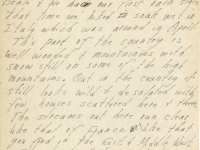 & we have our first such since
that time we hiked in soak wet in
Italy which was around in April.
This part of the country is
well wooded & mountainous with
snow still on some of the high
mountains. Out in the country it
still looks wild & desolated with
few houses scattered here & there.
The streams out here run clear
like that of France & like that
you find in the East & Middle West